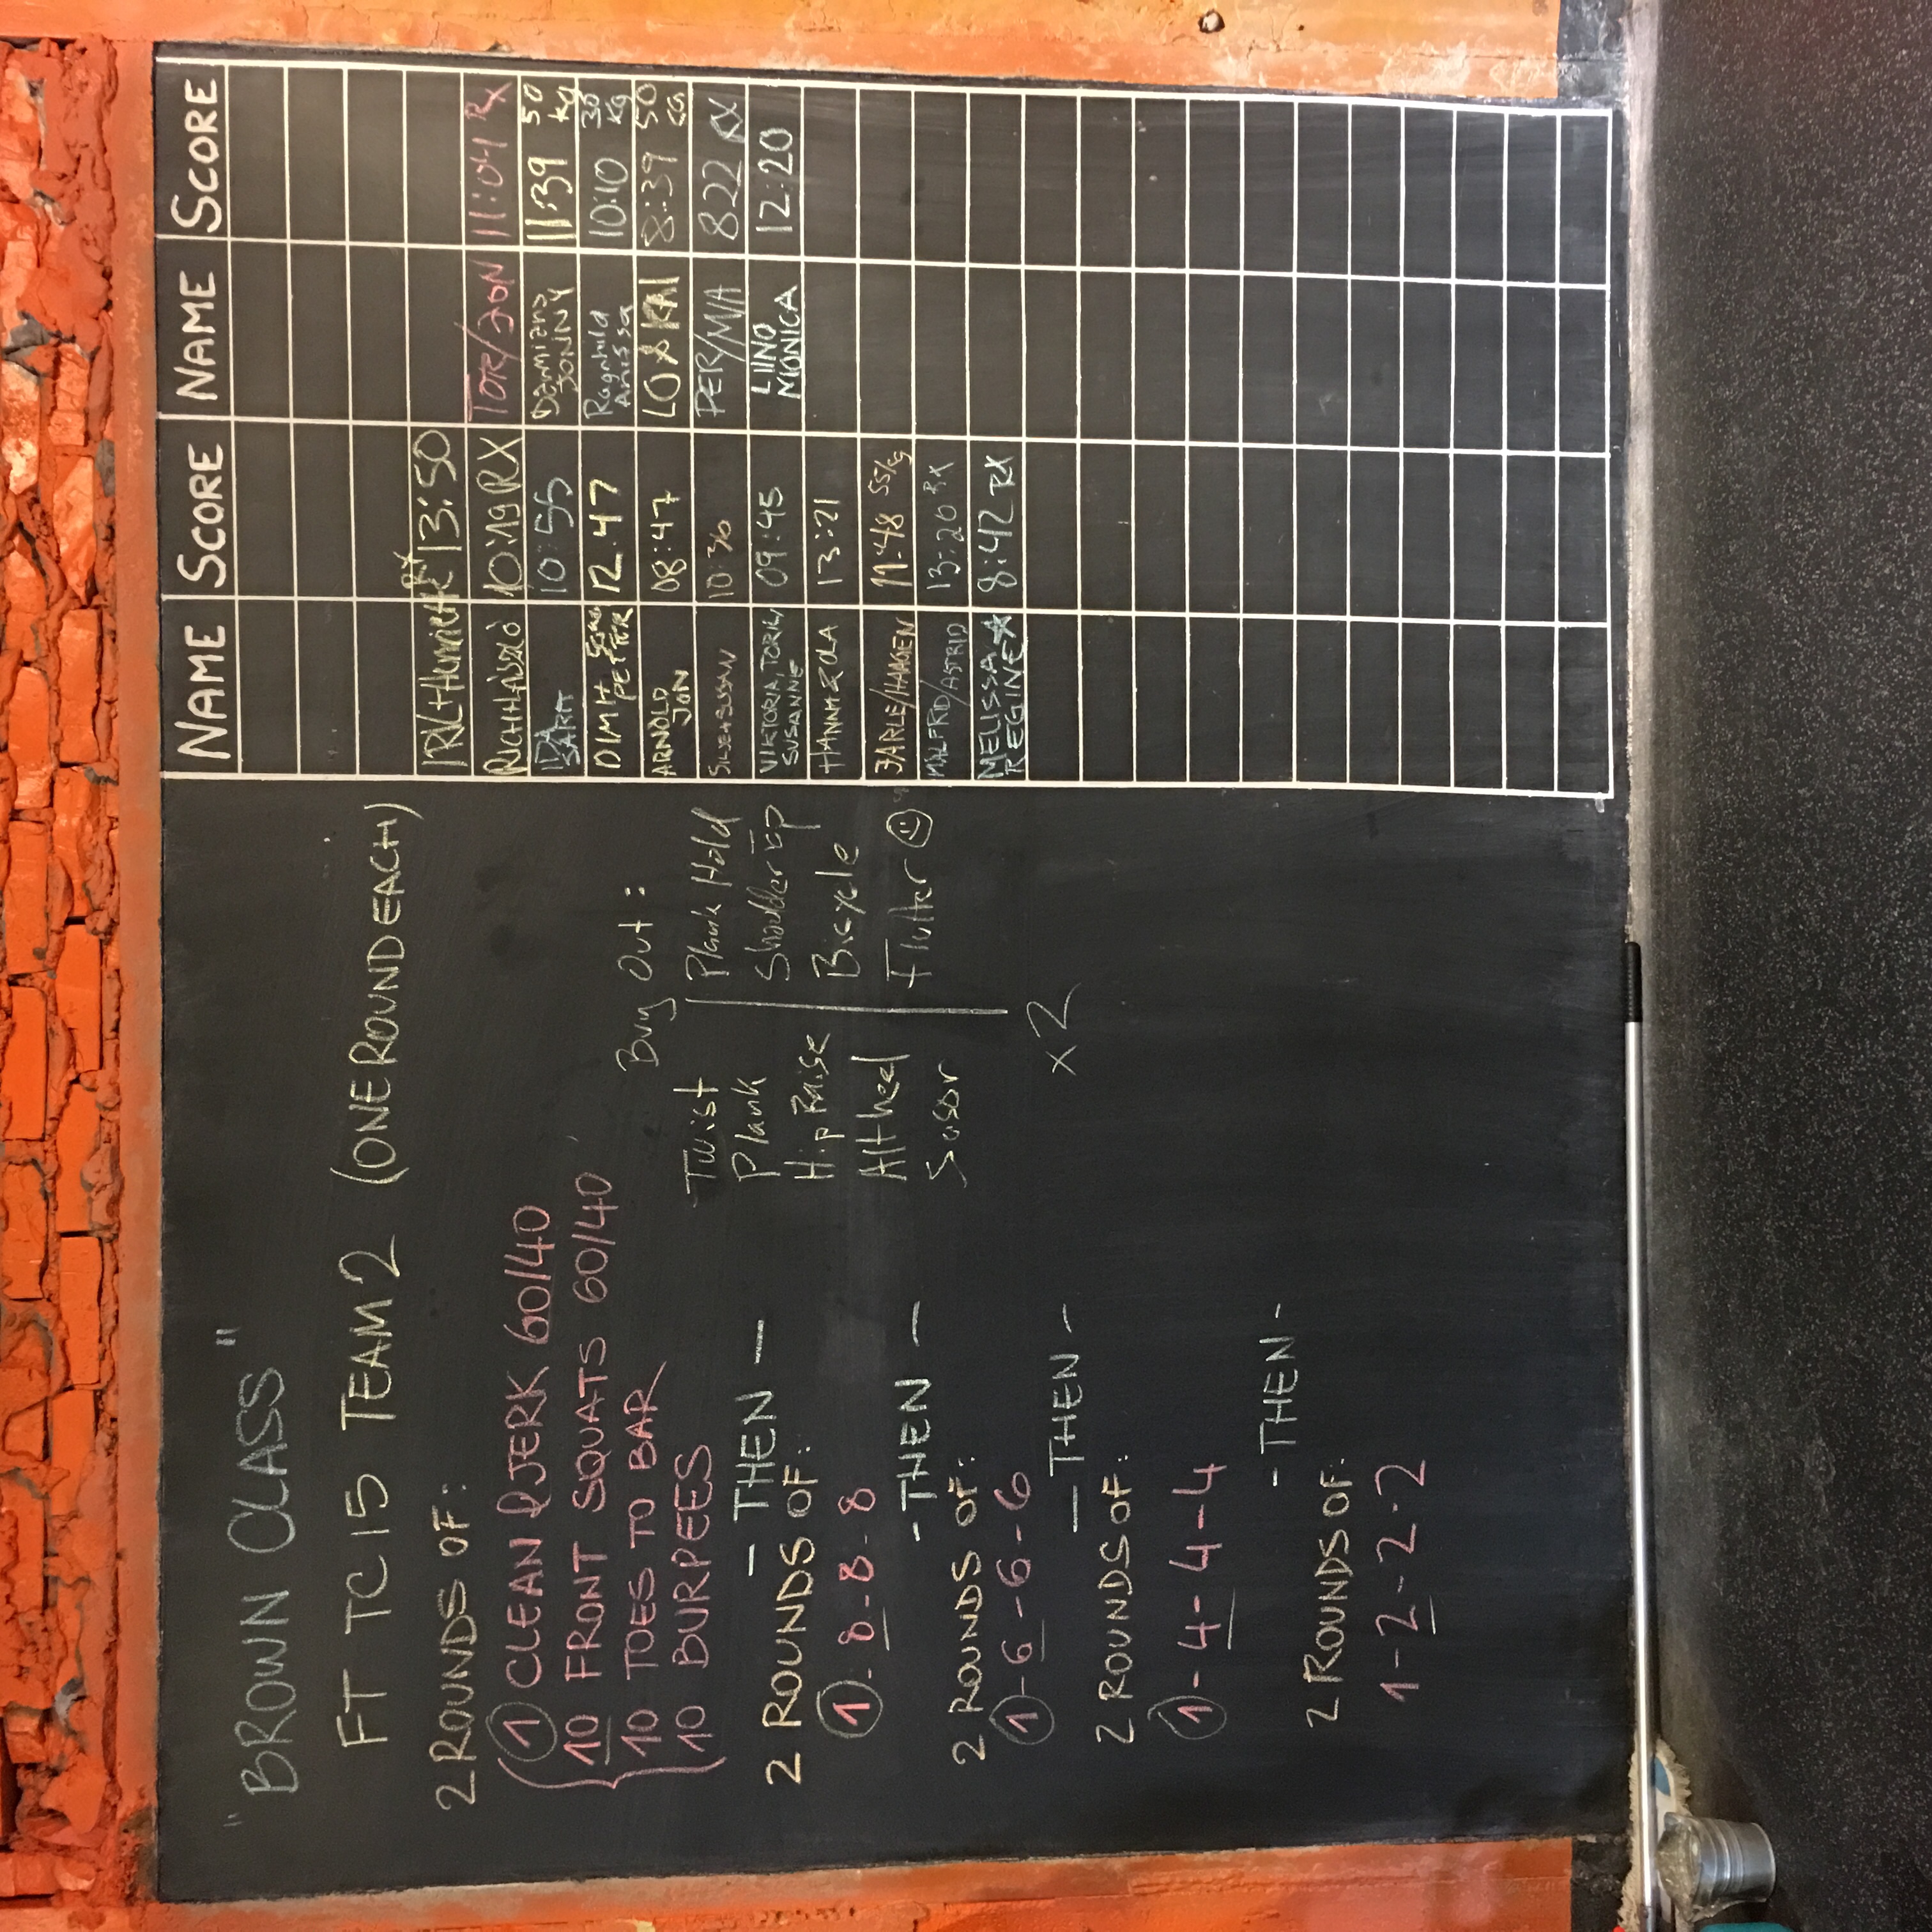 "BROWN CLASS"
FT TC 15 TEAM 2 (ONE ROUND EACH)
2 ROUNDS OF:
1 CLEAN & JERK 60/40
10 FRONT SQUATS 60/40
10 TOES TO BAR
10 BURPEES
- THEN -
2 ROUNDS OF:
1 - 8 - 8 - 8
- THEN -
2 ROUNDS OF:
1 - 6 - 6 - 6
- THEN -
2 ROUNDS OF:
1 - 4 - 4 - 4
- THEN -
2 ROUNDS OF:
1 - 2 - 2 - 2
Buy Out:
Twist Plank Hold
Plank Shoulder
Hip Raise Bicycle
Alt heel Flutter
x2
NAME SCORE NAME SCORE
13:50
10:19 RX TOR/JON 11:04 Rx
IDA 10:55 Damiano 11:39 50 kg
JONNY
12.47 Ragnhild 10:10 30 kg
PETTER Anissa
ARNOLD 08:47 LO & KAI 8:39 50
JON
10:36 PER/MIA 822 RX
VIKTORIA, TORILN 09:45 LIINO 12:20
SUSANNE MONICA
HANNA & OLA 13:21
JARLE/HAAGEN 11.48 55kg
MALFRID/ASTRID 13:20 Rx
MELISSA & 8:42 RX
REGINE